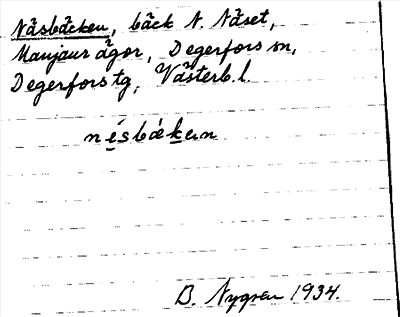 Näsbäcken, bäck N. Näset,
Manjaur ägor, Degerfors sn,
Degerfors tg, Västerb. l.
nésbäkɛn
B. Nygren 1934.